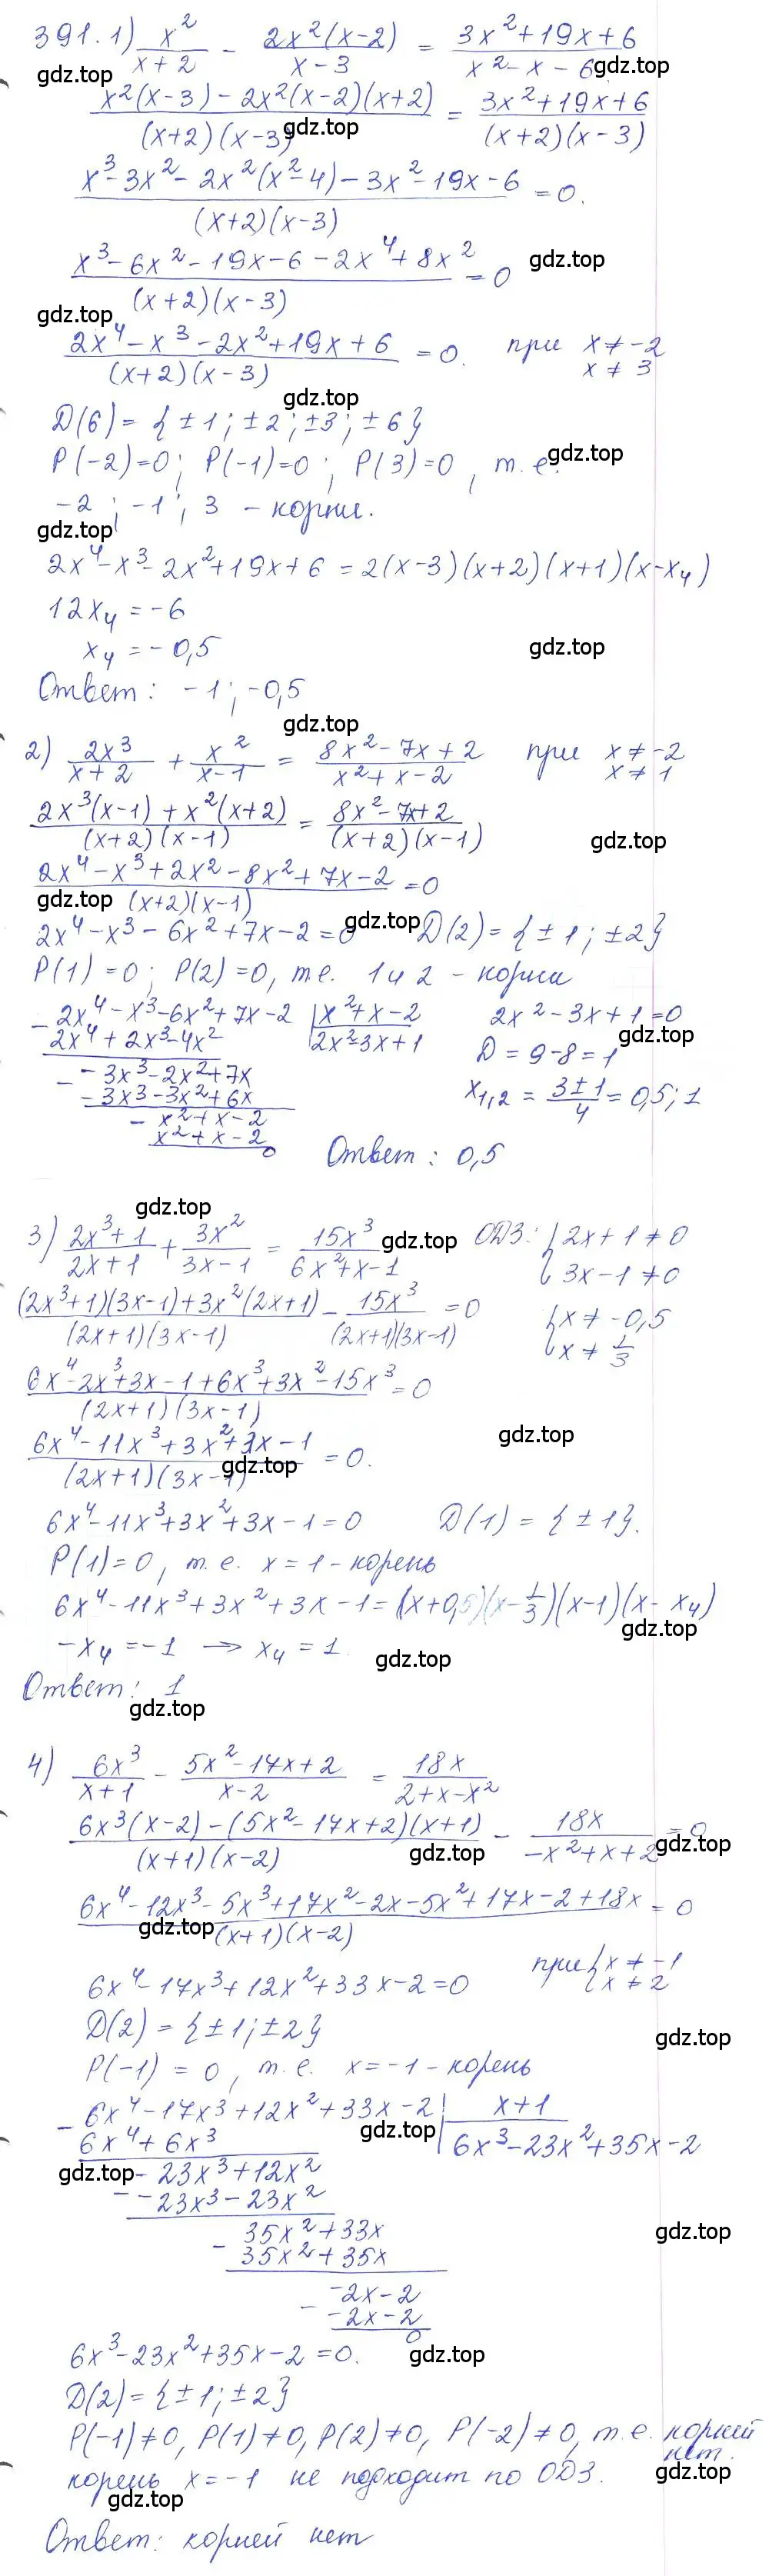 391. 1) x²/(x+2) - 2x²(x-2)/(x-3) = (3x²+19x+6)/(x²-x-6)
gdz.top gdz.top
(x²(x-3)-2x²(x-2)(x+2))/((x+2)(x-3)) = (3x²+19x+6)/((x+2)(x-3))
gdz.top
(x³-3x²-2x²(x²-4)-3x²-19x-6)/((x+2)(x-3)) = 0.
(x³-6x²-19x-6-2x⁴+8x²)/((x+2)(x-3)) = 0 gdz.top
gdz.top
(2x⁴-x³-2x²+19x+6)/((x+2)(x-3)) = 0. при x≠-2 x≠3
gdz.top
D(6)= {±1; ±2; ±3; ±6}
P(-2)=0; P(-1)=0; P(3)=0, т.е. gdz.top
-2; -1; 3 - корни.
gdz.top
2x⁴-x³-2x²+19x+6=2(x-3)(x+2)(x+1)(x-x₄)
12x₄=-6
x₄=-0,5 gdz.top
Ответ: -1; -0,5
gdz.top
2) 2x³/(x+2) + x²/(x-1) = (8x²-7x+2)/(x²+x-2) при x≠-2 x≠1
(2x³(x-1)+x²(x+2))/((x+2)(x-1)) = (8x²-7x+2)/((x+2)(x-1)) gdz.top
(2x⁴-x³+2x²-8x²+7x-2)/((x+2)(x-1)) = 0
gdz.top
2x⁴-x³-6x²+7x-2=0 gdz.top D(2)={±1; ±2}
P(1)=0; P(2)=0, т.е. 1 и 2 - корни
-2x⁴-x³-6x²+7x-2 | x²+x-2 2x²-3x+1=0
2x⁴+2x³-4x² 2x²-3x+1 D=9-8=1 gdz.top
- -3x³-2x²+7x
-3x³-3x²+6x x₁,₂ = (3±1)/4 = 0,5; 1
- x²+x-2
x²+x-2
0 Ответ: 0,5
gdz.top
3) (2x³+1)/(2x+1) + 3x²/(3x-1) = 15x³/(6x²+x-1) gdz.top ОДЗ: {2x+1≠0
{3x-1≠0
((2x³+1)(3x-1)+3x²(2x+1))/((2x+1)(3x-1)) - 15x³/((2x+1)(3x-1)) = 0 {x≠-0,5
{x≠1/3
(6x⁴-2x³+3x-1+6x³+3x²-15x³)/((2x+1)(3x-1)) = 0
(6x⁴-11x³+3x²+3x-1)/((2x+1)(3x-1)) = 0. gdz.top
gdz.top
6x⁴-11x³+3x²+3x-1=0 D(1)={±1}.
P(1)=0, т.е. x=1-корень
6x⁴-11x³+3x²+3x-1=(x+0,5)(x-1/3)(x-1)(x-x₄)
gdz.top
-x₄=-1 → x₄=1. gdz.top
Ответ: 1
gdz.top
4) 6x³/(x+1) - (5x²-17x+2)/(x-2) = 18x/(2+x-x²)
(6x³(x-2)-(5x²-17x+2)(x+1))/((x+1)(x-2)) - 18x/(-x²+x+2) = 0
gdz.top gdz.top
(6x⁴-12x³-5x³+17x²-2x-5x²+17x-2+18x)/((x+1)(x-2)) = 0
gdz.top
6x⁴-17x³+12x²+33x-2=0 при {x≠-1 x≠2
D(2)={±1; ±2} gdz.top
P(-1)=0, т.е. x=-1-корень
- 6x⁴-17x³+12x²+33x-2 | x+1
6x⁴+6x³ gdz.top 6x³-23x²+35x-2
gdz.top - 23x³+12x²
- -23x³-23x²
35x²+33x gdz.top
- 35x²+35x
-2x-2
- -2x-2
0
6x³-23x²+35x-2=0. gdz.top
D(2)={±1; ±2}
P(-1)≠0, P(1)≠0, P(2)≠0, P(-2)≠0, т.е. корней нет.
корень x=-1 не подходит по ОДЗ. gdz.top
gdz.top
Ответ: корней нет